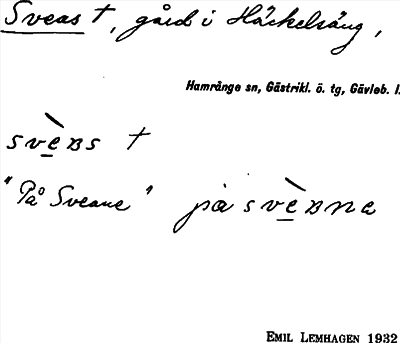 Sveas †, gård i Häckelsäng,
Hamrånge sn, Gästrikl. ö. tg, Gävleb. l.
svèʙs †
"På Sveane" på svèʙna
EMIL LEMHAGEN 1932